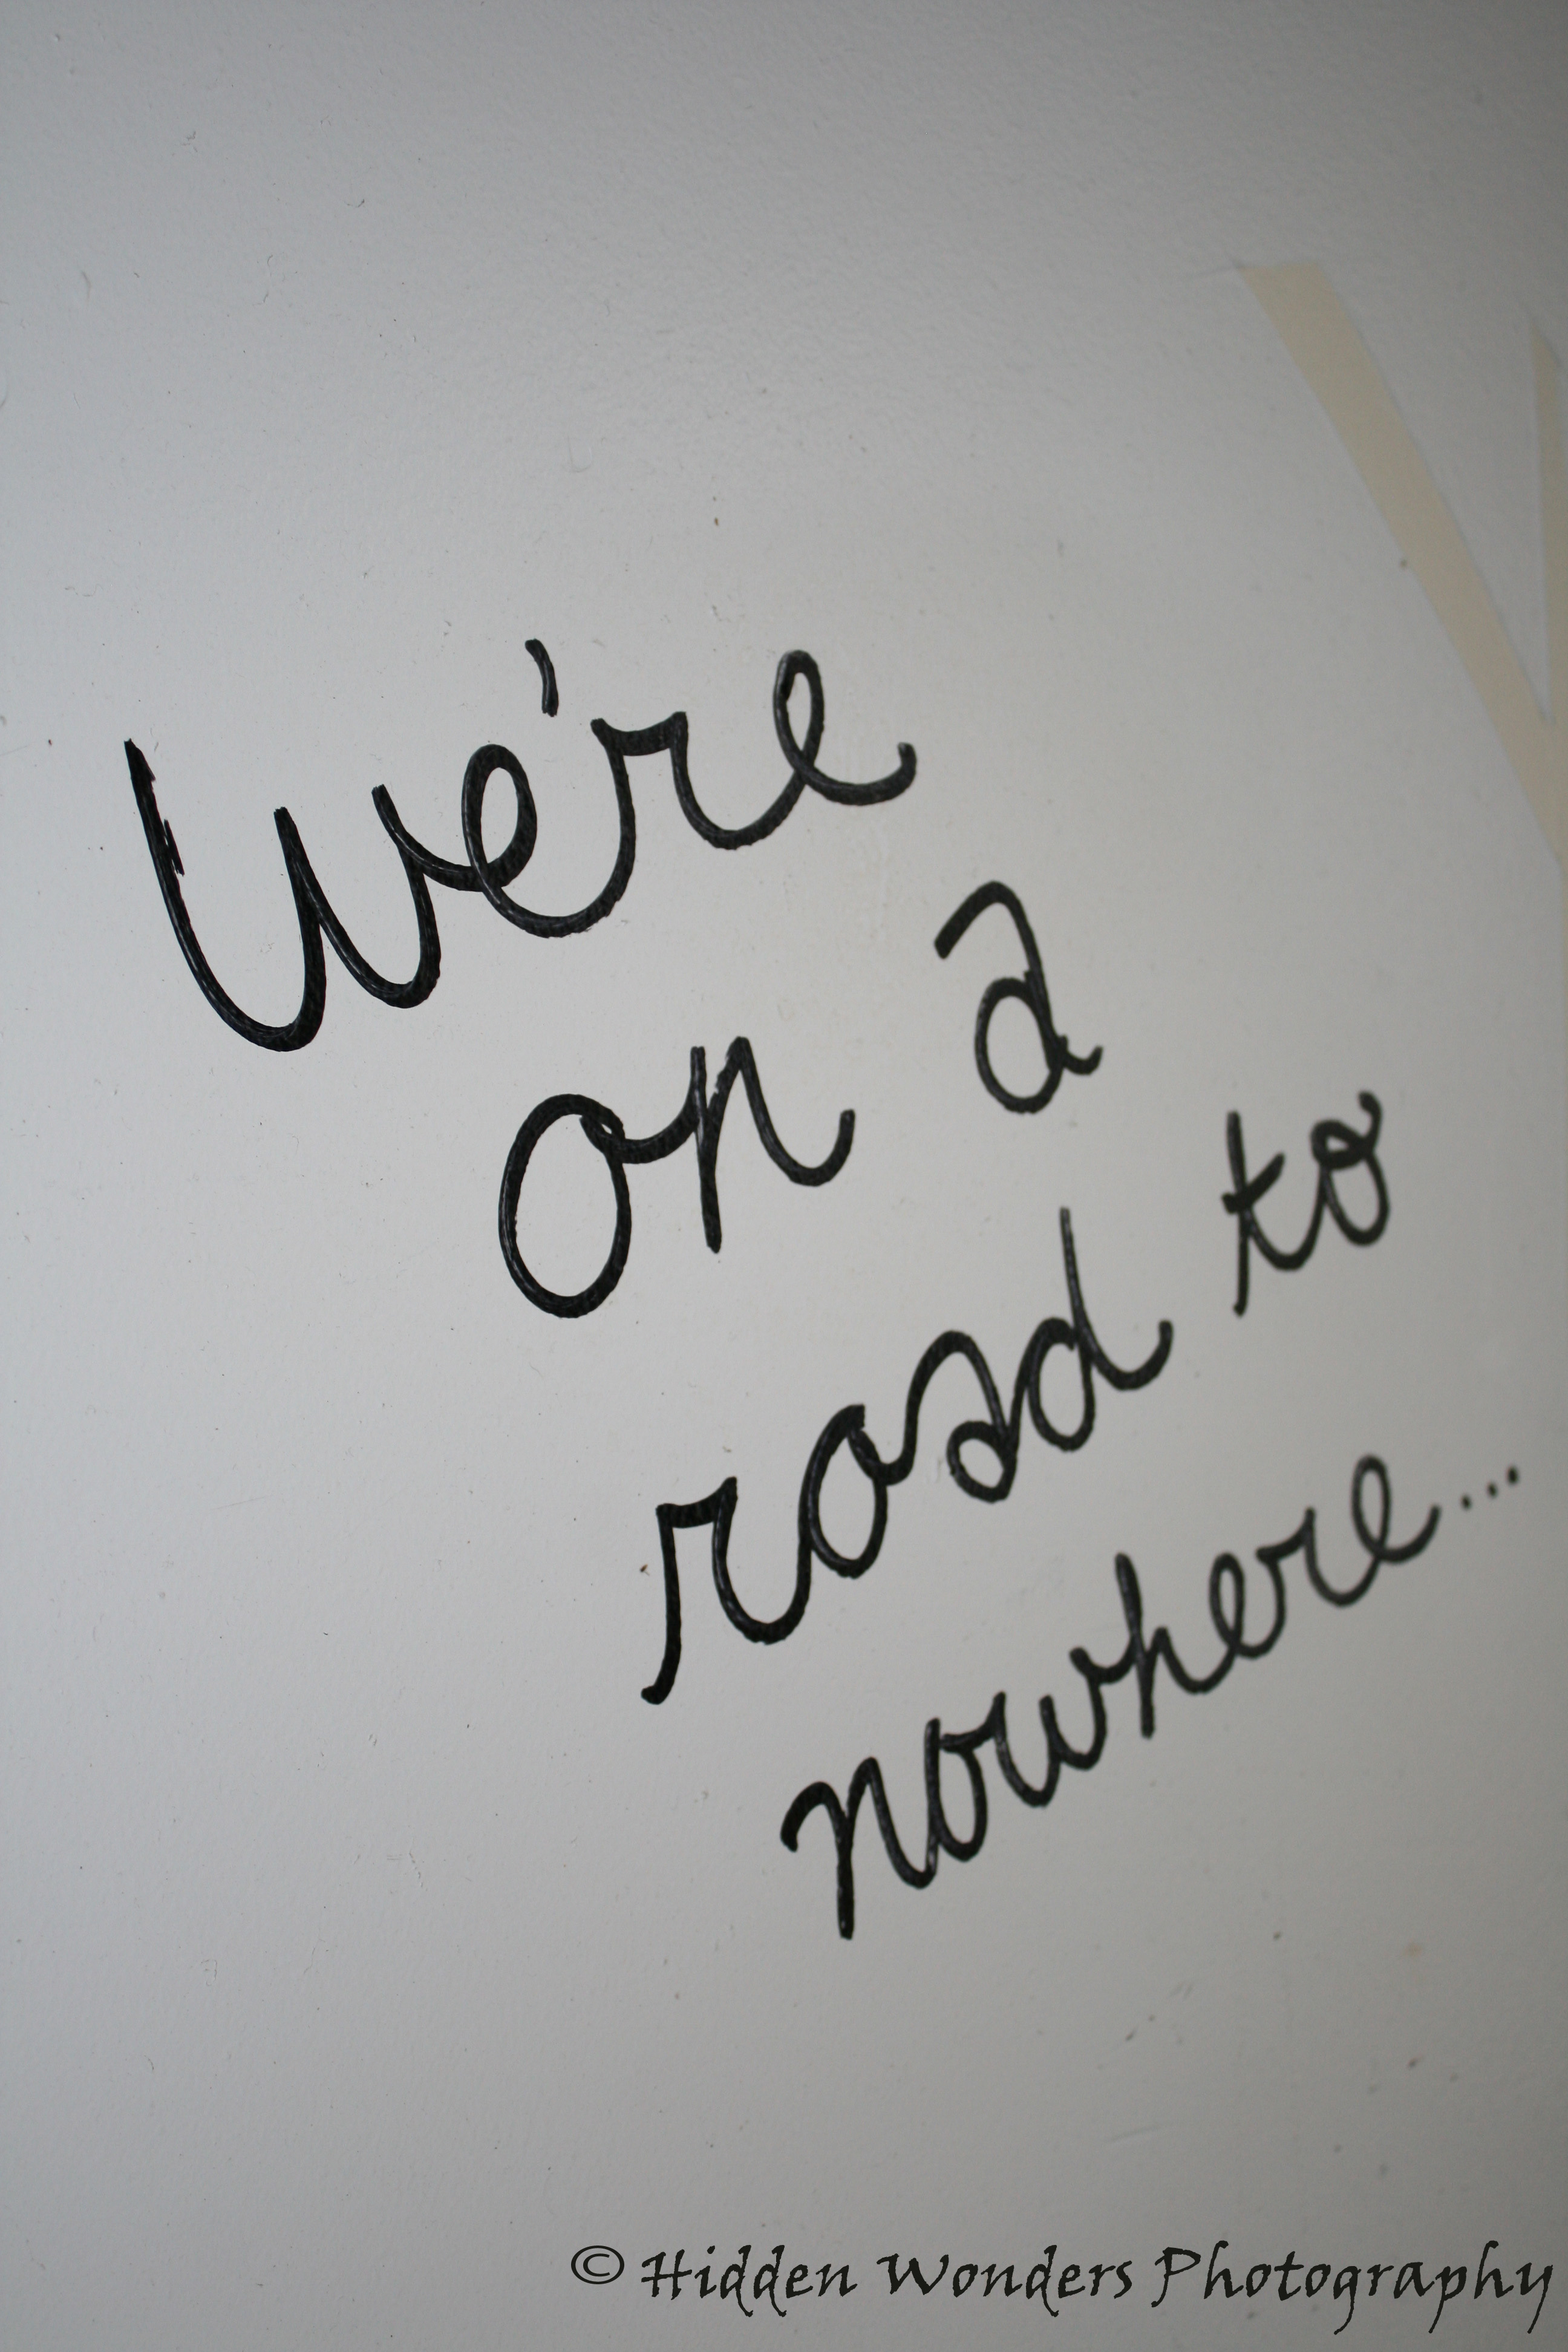 We're
on a
road to
nowhere...
© Hidden Wonders Photography